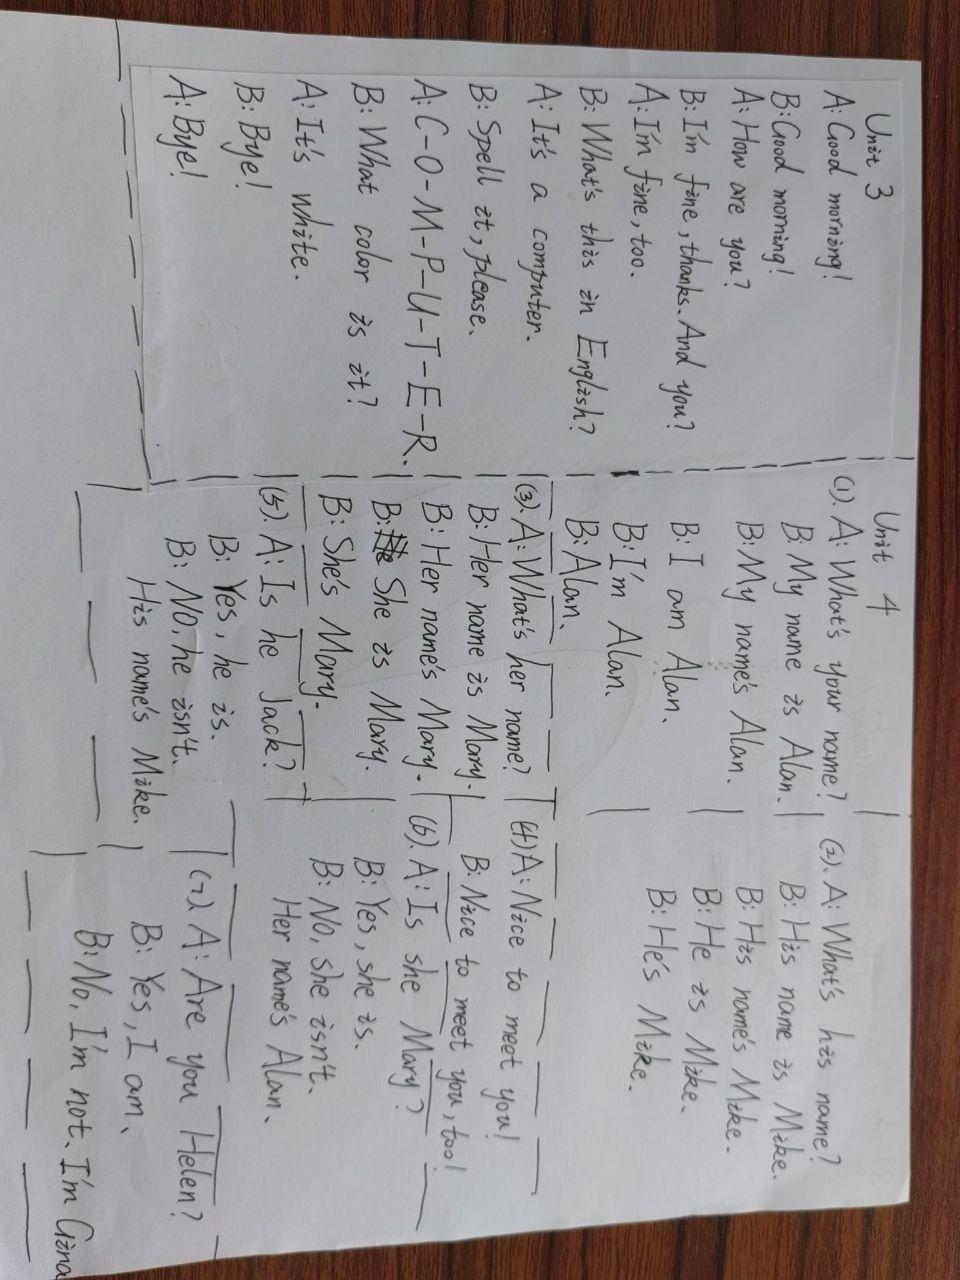 Unit 3
A: Good morning!
B: Good morning!
A: How are you?
B: I'm fine, thanks. And you?
A: I'm fine, too.
B: What's this in English?
A: It's a computer.
B: Spell it, please.
A: C-O-M-P-U-T-E-R.
B: What color is it?
A: It's white.
B: Bye!
A: Bye!
Unit 4
(1). A: What's your name?
B: My name is Alan.
B: My name's Alan.
B: I am Alan.
B: I'm Alan.
B: Alan.
(2). A: What's his name?
B: His name is Mike.
B: His name's Mike.
B: He is Mike.
B: He's Mike.
(3). A: What's her name?
B: Her name is Mary.
B: Her name's Mary.
B: She is Mary.
B: She's Mary.
(4) A: Nice to meet you!
B: Nice to meet you, too!
(5). A: Is he Jack?
B: Yes, he is.
B: No, he isn't.
His name's Mike.
(6). A: Is she Mary?
B: Yes, she is.
B: No, she isn't.
Her name's Alan.
(7). A: Are you Helen?
B: Yes, I am.
B: No, I'm not. I'm Gina